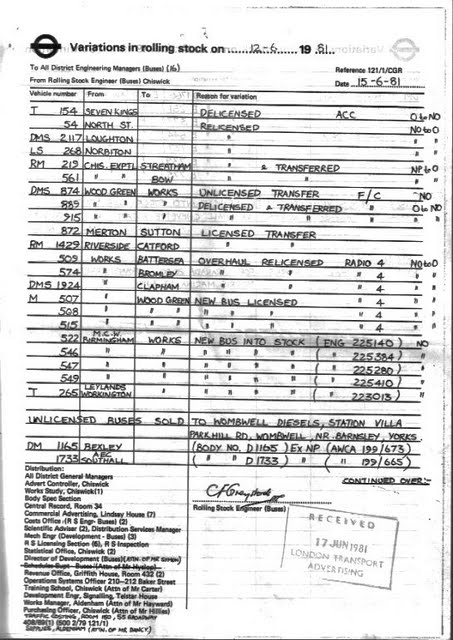 Variations in rolling stock on 12-6. 19 81.
To All District Engineering Managers (Buses) (16) Reference 121/1/CGR
From Rolling Stock Engineer (Buses) Chiswick Date 15-6-81
Vehicle number From To Reason for variation
T 154 SEVEN KINGS DELICENSED ACC O to NO
54 NORTH ST. RELICENSED NO to O
DMS 2117 LOUGHTON " " "
LS 268 NORBITON " " "
RM 219 CHIS. EXPTL STREATHAM " & TRANSFERRED NP to O
561 " " BOW " " "
DMS 874 WOOD GREEN WORKS UNLICENSED TRANSFER F/C NO
889 " " " DELICENSED & TRANSFERRED O to NO
915 " " " " " "
872 MERTON SUTTON LICENSED TRANSFER
RM 1429 RIVERSIDE CATFORD " "
509 WORKS BATTERSEA OVERHAUL RELICENSED RADIO 4 NO to O
574 " BROMLEY " " " 4 "
DMS 1924 " CLAPHAM " " " 4 "
M 507 " WOOD GREEN NEW BUS LICENSED " 4 "
508 " " " " " " " 4 "
515 " " " " " " " 4 "
522 M.C.W. BIRMINGHAM WORKS NEW BUS INTO STOCK (ENG 225140) NO
546 " " " " " " ( " 225384) "
547 " " " " " " ( " 225280) "
549 " " " " " " ( " 225410) "
T 265 LEYLANDS WORKINGTON " " " " " ( " 223013) "
UNLICENSED BUSES SOLD TO WOMBWELL DIESELS, STATION VILLA
PARK HILL RD, WOMBWELL, NR. BARNSLEY, YORKS.
DM 1165 BEXLEY (BODY NO. D1165) Ex NP (AWCA 199/673)
1733 AEC SOUTHALL ( " " D1733) " ( " 199/665)
CONTINUED OVER:-
Distribution:
All District General Managers
Advert Controller, Chiswick
Works Study, Chiswick(1)
Body Spec Section
Central Record, Room 34
Commercial Advertising, Lindsay House (7)
Costs Office (R S Engr- Buses) (2)
Scientific Adviser (2), Distribution Services Manager
Mech Engr (Development - Buses) (3)
R S Licensing Section (6), R S Inspection
Statistical Office, Chiswick (2)
Director of Development (Buses)
Schedules Supt - Buses (Attn of Mr Hyslop)
Revenue Office, Griffith House, Room 432 (2)
Operations Systems Officer 210-212 Baker Street
Training School, Chiswick (Attn of Mr Carter)
Development Engr, Signalling, Telstar House
Works Manager, Aldenham (Attn of Mr Hayward)
Purchasing Officer, Chiswick (Attn of Mr Hillies)
TRAFFIC COSTING, ROOM 150, 55 BROADWAY
408/89(1) (500 2/79 121/1)
Rolling Stock Engineer (Buses)
RECEIVED
17 JUN 1981
LONDON TRANSPORT
ADVERTISING